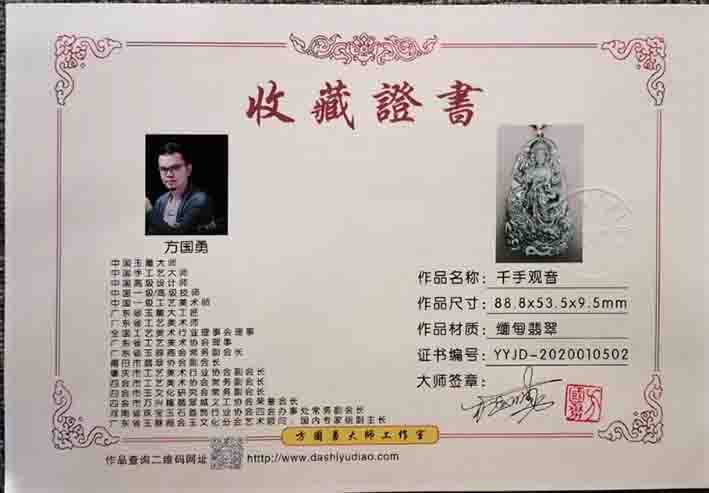 收藏證書
方国勇
中国玉雕大师
中国手工艺大师
中国高级设计师
中国一级/高级技师
中国一级工艺美术师
广东省玉雕大工匠
广东省工艺美术师
全国工艺美术行业理事会理事
广东省工艺美术协会理事
广东省玉器商会常务副会长
揭阳市翡翠协会副会长
肇庆市工艺美术行业协会副会长
四会市工艺美术协会常务副会长
四会市玉文化研究会常务副会长
四会市万兴隆翡翠城义工协会荣誉会长
河南省珠宝玉石首饰行业协会四会办事处常务副会长
广东省玉器商会玉文化分会艺术顾问、国内专家组副主长
作品名称：千手观音
作品尺寸：88.8x53.5x9.5mm
作品材质：缅甸翡翠
证书编号：YYJD-2020010502
大师签章：
方国勇大师工作室
作品查询二维码网址
http://www.dashiyudiao.com